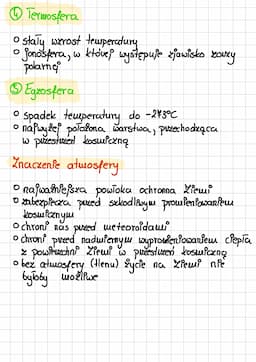 ④ Termosfera
○ stały wzrost temperatury
○ jonosfera, w której występuje zjawisko zorzy
polarnej
⑤ Egzosfera
○ spadek temperatury do -273°C
○ najwyżej położona warstwa, przechodząca
w przestrzeń kosmiczną
Znaczenie atmosfery
○ najważniejsza powłoka ochronna Ziemi
○ zabezpiecza przed szkodliwym promieniowaniem
kosmicznym
○ chroni nas przed meteoroidami
○ chroni przed nadmiernym wypromieniowaniem ciepła
z powierzchni Ziemi w przestrzeń kosmiczną
○ bez atmosfery (tlenu) życie na Ziemi nie
byłoby możliwe